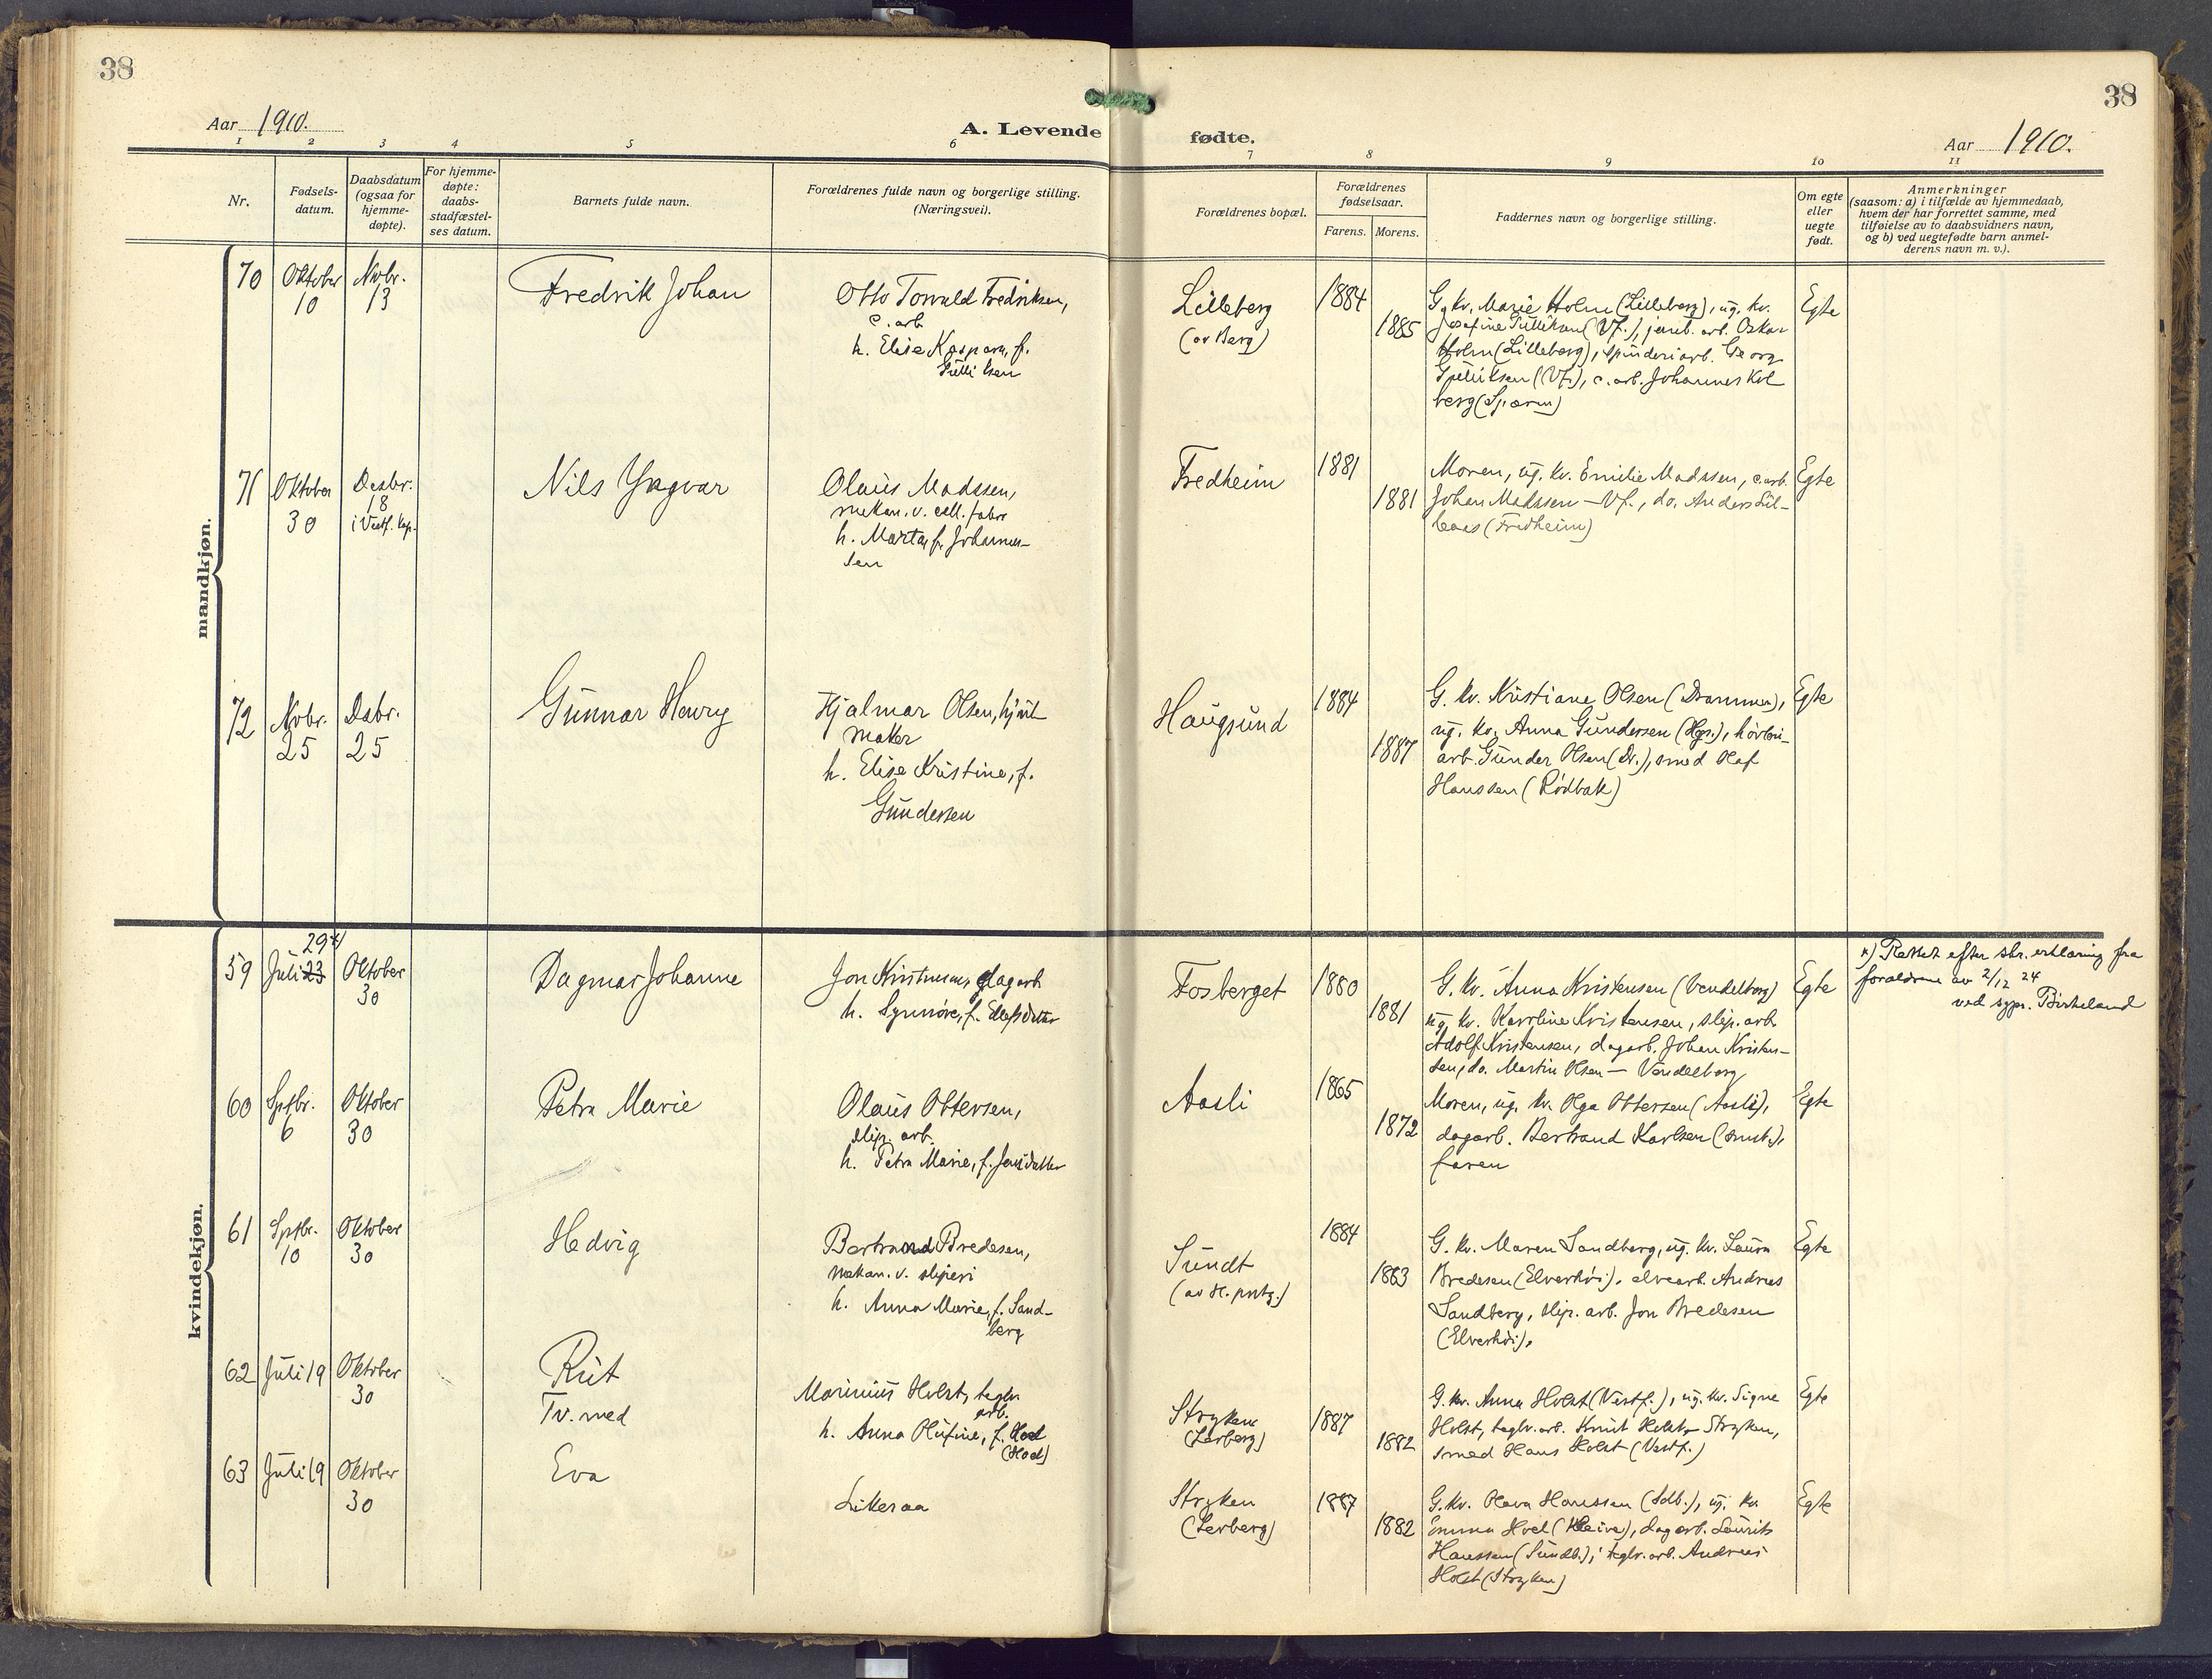 38
38
Aar 1910.
A. Levende
fødte.
Aar 1910.
1 2 3 4 5 6
7 8 9 10 11
Nr.
Fødsels-
datum.
Daabsdatum
(ogsaa for
hjemme-
døpte).
For hjemme-
døpte:
daabs-
stadfæstel-
ses datum.
Barnets fulde navn.
Forældrenes fulde navn og borgerlige stilling.
(Næringsvei).
Forældrenes bopæl.
Forældrenes
fødselsaar.
Farens. Morens.
Faddernes navn og borgerlige stilling.
Om egte
eller
uegte
født.
Anmerkninger
(saasom: a) i tilfælde av hjemmedaab,
hvem der har forrettet samme, med
tilføielse av to daabsvidners navn,
og b) ved uegtefødte barn anmel-
derens navn m. v.).
mandkjøn.
70
Oktober
10
Novbr.
13
Fredrik Johan
Otto Torvald Fredriksen,
c. arb.
h. Elise Kaspara, f.
Tellefsen
Lilleberg
(av Berg)
1884
1885
G. kv. Marie Holm (Lilleberg), ug. kv.
Josefine (Vf.), jernb. arb. Oskar
Holm (Lilleberg), spinderiarb. Georg
(Vf.), c. arb. Johannes Kol
berg
Egte
71
Oktober
30
Desbr.
18
i Vestf. kap.
Nils Yngvar
Olaus Madssen,
mekan. v. cell. fabr
h. Marta, f. Johannes-
sen
Fredheim
1881
1881
Moren, ug. kv. Emilie Madssen, c. arb.
Johan Madssen – Vf., do. Anders Lil-
leaas (Fredheim)
Egte
72
Novbr.
25
Debr.
25
Gunnar Henry
Hjalmar Olsen, hjul-
maker
h. Elise Kristine, f.
Gundersen
Haugsund
1884
1887
G. kv. Kristiane Olsen (Drammen),
ug. kv. Anna Gundersen (Hgs.), høvleri-
arb. Gunder Olsen (Dr.), smed Olaf
Hanssen (Rødbak)
Egte
kvindekjøn.
59
29 x)
Juli 23
Oktober
30
Dagmar Johanne
Jon Kristensen, dagarb
h. Synnøve, f. Ellefsdatter
Fosberget
1880
1881
G. kv. Anna Kristensen (Vendelborg)
ug. kv. Karoline Kristensen, slip. arb.
Adolf Kristensen, dagarb. Johan Kristen-
sen, do. Martin Olsen – Vendelborg
Egte
x) Rettet efter skr. erklæring fra
forældrene av 2/12 24
ved sgpr. Birkeland
60
Sptbr.
6
Oktober
30
Petra Marie
Olaus Ottersen,
slip. arb.
h. Petra Marie, f. Jensdatter
Aasli
1865
1872
Moren, ug. kv. Olga Ottersen (Aasli),
dagarb. Bertrand Karlsen (smst.),
faren
Egte
61
Sptbr.
10
Oktober
30
Hedvig
Bertrand Bredesen,
mekan. v. sliperi
h. Anna Marie, f. Sand-
berg
Sundt
(av H. prstg.)
1884
1883
G. kv. Maren Sandberg, ug. kv. Laura
Bredesen (Elverhøi), elvearb. Andreas
Sandberg, slip. arb. Jon Bredesen
(Elverhøi).
Egte
62
Juli 19
Oktober
30
Rut
Tv. med
Marinius Holst, teglv.
arb.
h. Anna Olufine, f. Hoel
(Hoel)
Stryken
(Lerberg)
1887
1882
G. kv. Anna Holst (Vestf.), ug. kv. Signe
Holst, teglv. arb. Knut Holst, Stryken,
smed Hans Holst (Vestf.)
Egte
63
Juli 19
Oktober
30
Eva
Likesaa
Stryken
(Lerberg)
1887
1882
G. kv. Olava Hanssen (Sdb.), ug. kv.
Emma Hoel (Kleiva), dagarb. Laurits
Hanssen (Sundb.), teglv. arb. Andreas
Holst (Stryken)
Egte